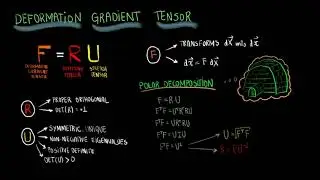 DEFORMATION GRADIENT TENSOR
F = R U
DEFORMATION GRADIENT TENSOR
ROTATION TENSOR
STRETCH TENSOR
F → TRANSFORMS dX into dx
→ dx = F dX
R → PROPER ORTHOGONAL
→ DET(R) = +1
U → SYMMETRIC, UNIQUE
→ NON-NEGATIVE EIGENVALUES
→ POSITIVE DEFINITE
DET(U) > 0
POLAR DECOMPOSITION
F = R U
FᵀF = UᵀRᵀRU
FᵀF = URᵀRU
FᵀF = U I U
FᵀF = U²
U = √FᵀF
R = FU⁻¹